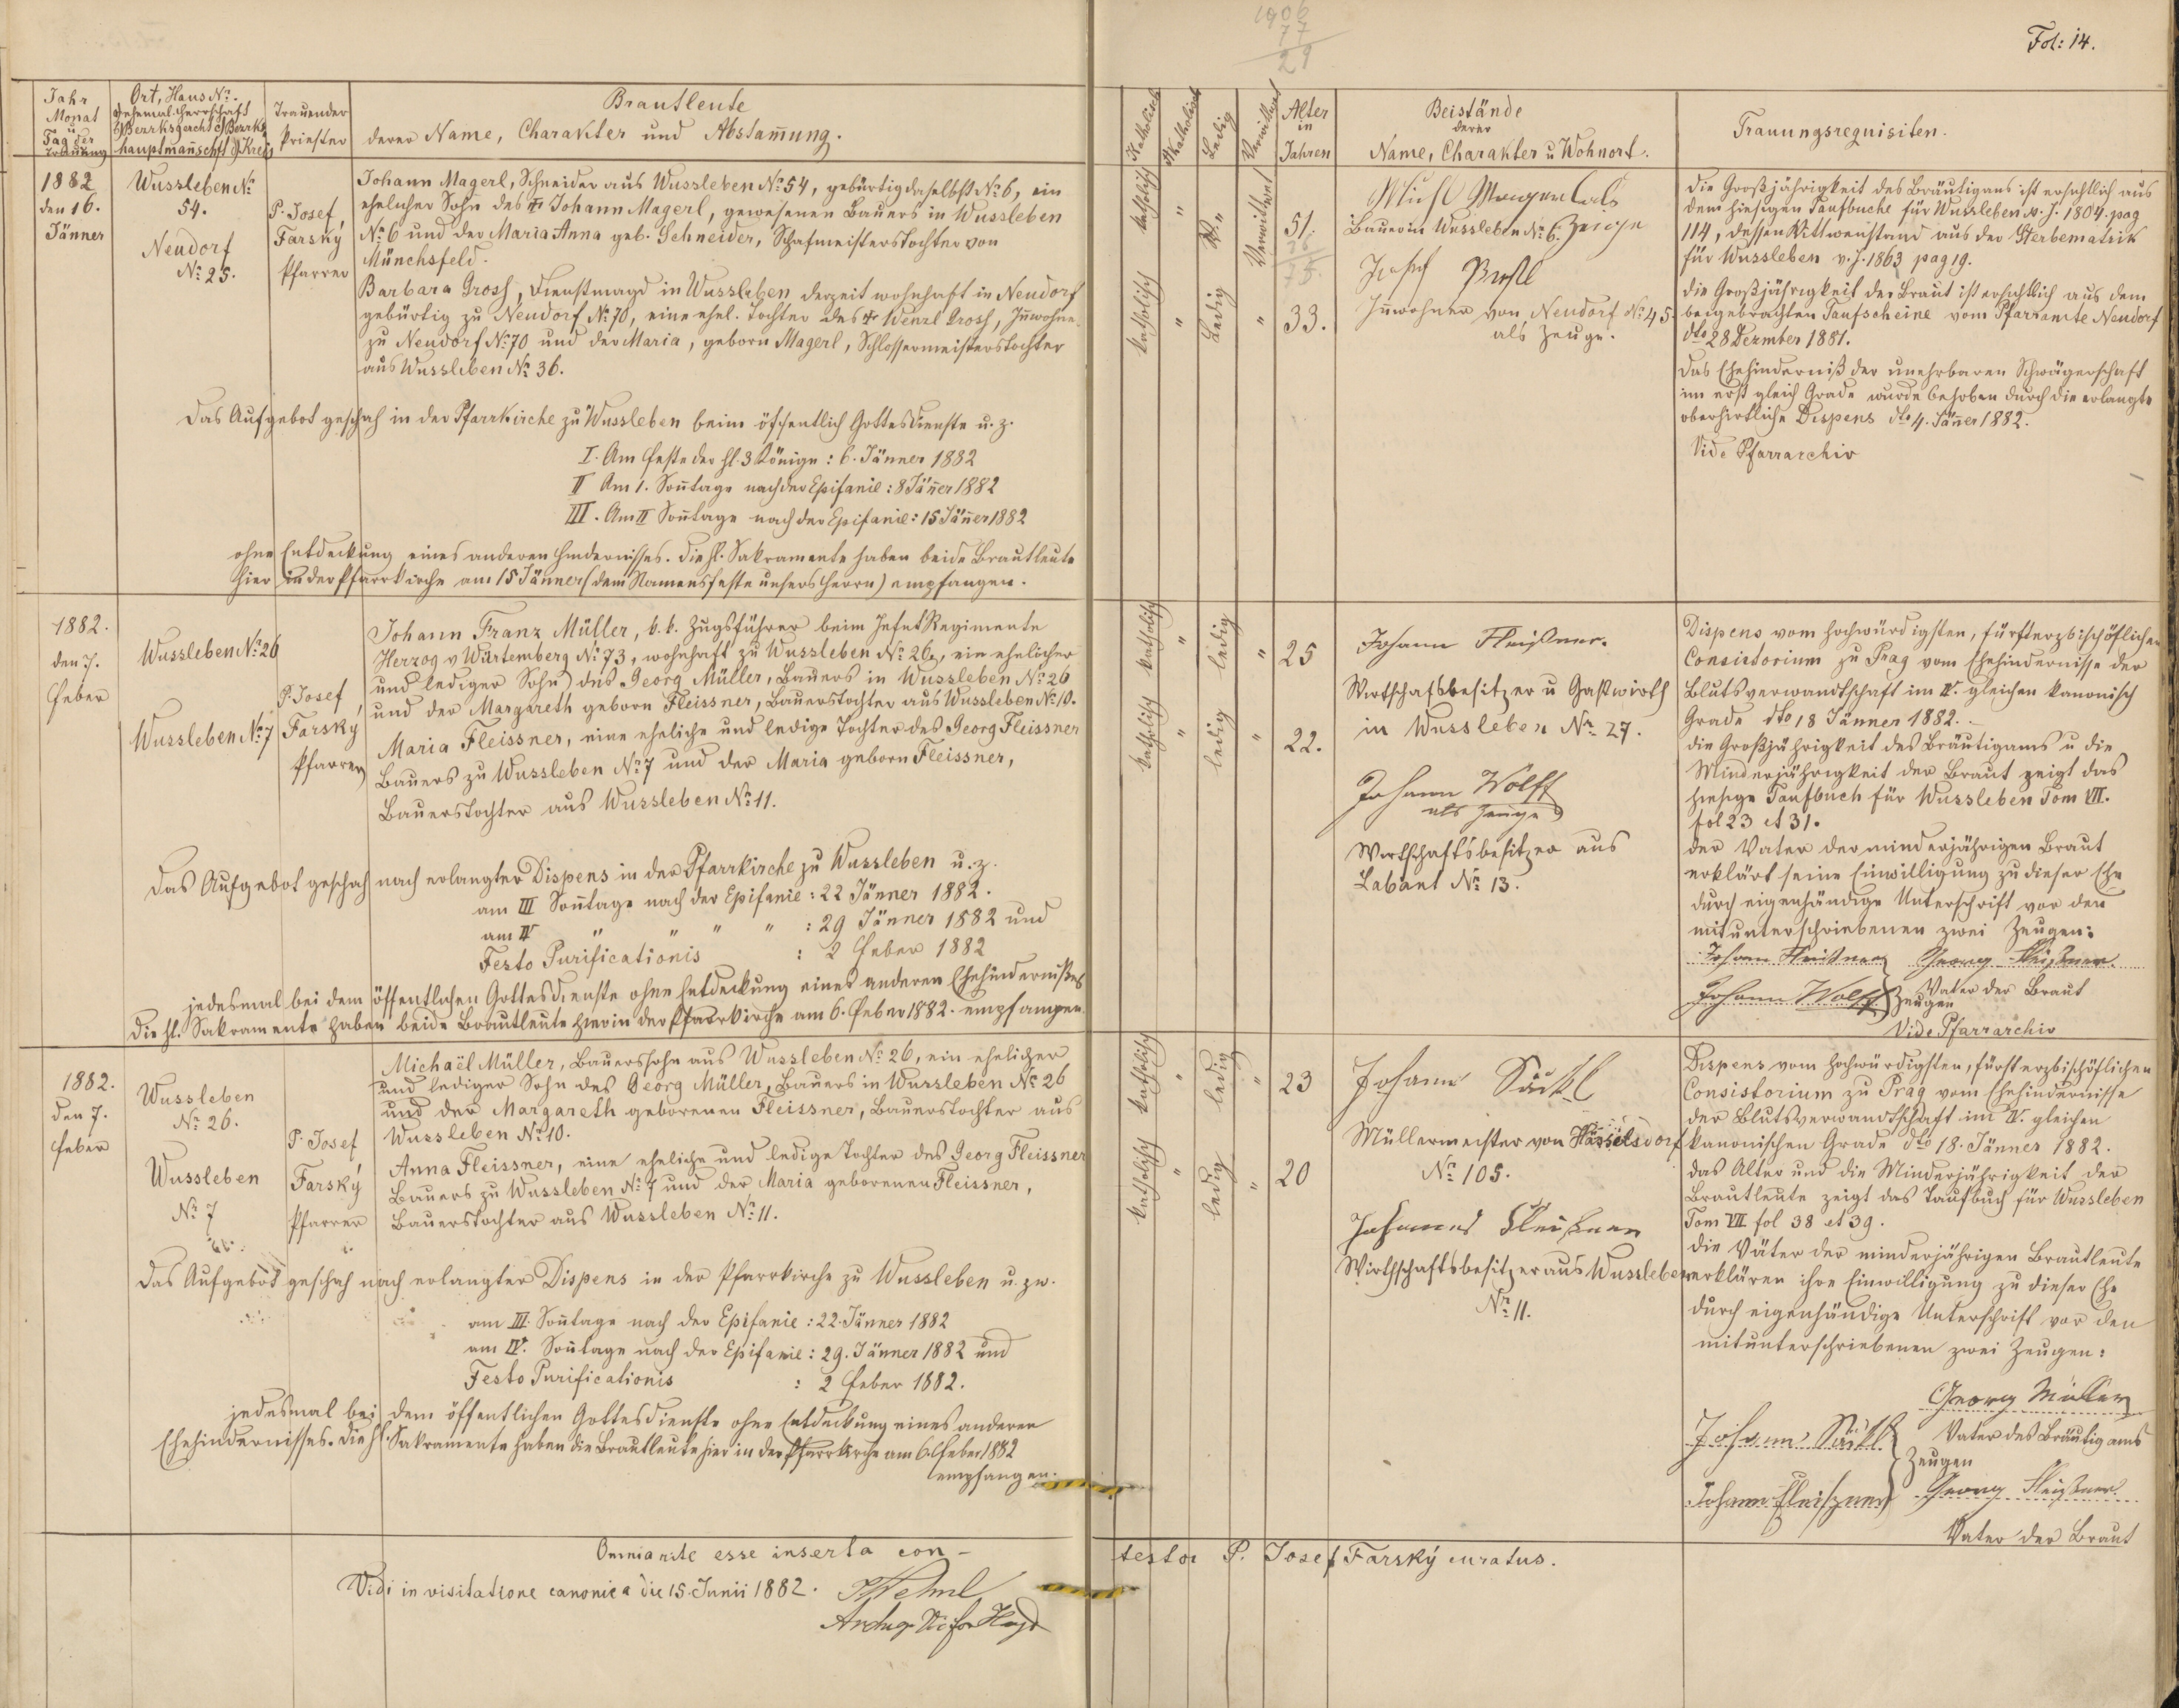 Fol: 14.
Jahr
Monat
u
Tag der
Trauung
Ort, Haus No.
Trauender
Priester
Brautleute
derer Name, Charakter und Abstam̄ung.
Katholisch
Akatholisch
Ledig
Verwittwet
Alter
in
Jahren
Beistände
derer
Name, Charakter u Wohnort.
Trauungsrequisiten.
1882
den 16.
Jänner
Wussleben No
54.
Neudorf
No 25.
P. Josef
Farský
Pfarrer
Johann Magerl, Schneider aus Wussleben No 54, gebürtig daselbst No 6, ein
ehelicher Sohn des † Johann Magerl, gewesenen Bauers in Wussleben
No 6 und der Maria Anna geb. Schneider, Schafmeisterstochter von
Münchsfeld.
Barbara Grosz, Dienstmagd in Wussleben derzeit wohnhaft in Neudorf
gebürtig zu Neudorf No 70, eine ehel. Tochter des † Wenzl Grosz, Inwohner
zu Neudorf No 70 und der Maria, geborn Magerl, Schlossermeisterstochter
aus Wussleben No 36.
Das Aufgebot geschah in der Pfarrkirche zu Wussleben beim öffentlich Gottesdienste u. z.
I. Am Feste der hl. 3 Könige: 6. Jänner 1882
II Am 1. Son̄tage nach der Epifanie: 8 Jän̄er 1882
III. Am II Son̄tage nach der Epifanie: 15 Jän̄er 1882
ohne Entdeckung eines anderen Hindernisses. Die hl. Sakramente haben beide Brautleute
hier in der Pfarrkirche am 15 Jänner (dem Namensfeste unsers Herrn) empfangen.
katholisch
"
Verwittwet
51.
Bauer in Wussleben No 6. Zeuge
katholisch
"
Ledig
"
33.
Josef
Inwohner von Neudorf No 45
als Zeuge.
Die Großjährigkeit des Bräutigams ist ersichtlich aus
dem hiesigen Taufbuche für Wussleben v. J. 1804. pag
114, dessen Wittwenstand aus der Sterbematrik
für Wussleben v. J. 1863 pag 19.
Die Großjährigkeit der Braut ist ersichtlich aus dem
beigebrachten Taufscheine vom Pfarramte Neudorf
dto 28 Dezmber 1881.
Das Ehehinderniß der unehrbaren Schwägerschaft
im erst gleich Grade wurde behoben durch die erlangte
oberhirtliche Dispens dto 4. Jän̄er 1882.
Vide Pfarrarchiv
1882.
den 7.
Feber
Wussleben No 26
Wussleben No 7
P. Josef
Farský
Pfarrer
Johann Franz Müller, k. k. Zugsführer beim Infnt Regimente
Herzog v Würtemberg No 73, wohnhaft zu Wussleben No 26, ein ehelicher
und lediger Sohn des Georg Müller, Bauers in Wussleben No 26
und der Margareth geborn Fleissner, Bauerstochter aus Wussleben No 10.
Maria Fleissner, eine eheliche und ledige Tochter des Georg Fleissner
Bauers zu Wussleben No 7 und der Maria geborn Fleissner,
Bauerstochter aus Wussleben No 11.
Das Aufgebot geschah nach erlangter Dispens in der Pfarrkirche zu Wussleben u. z.
am III Son̄tage nach der Epifanie: 22 Jänner 1882.
am IV " " " : 29 Jänner 1882 und
Festo Purificationis : 2 Feber 1882
jedesmal bei dem öffentlichen Gottesdienste ohne Entdeckung eines anderen Ehehindernißes
Die hl. Sakramente haben beide Brautleute hier in der Pfarrkirche am 6. Feber 1882. empfangen
katholisch
"
ledig
"
25
katholisch
"
ledig
"
22.
Johann Fleißner.
Wirtschaftsbesitzer u Gastwirth
in Wussleben No 27.
Johann Wolff
als Zeuge
Wirtschaftsbesitzer aus
Labant No 13.
Dispens vom hochwürdigsten, fürsterzbischöflichen
Consistorium zu Prag vom Ehehindernisse der
Blutsverwandtschaft im IV. gleichen kanonisch
Grade dto 18 Jänner 1882.
Die Großjährigkeit des Bräutigams u die
Minderjährigkeit der Braut zeigt das
hiesige Taufbuch für Wussleben Tom VII.
fol 23 et 31.
Der Vater der minderjährigen Braut
erklärt seine Einwilligung zu dieser Ehe
durch eigenhändige Unterschrift vor den
mitunterschriebenen zwei Zeugen:
Johann Fleißner Georg Fleißner
Johann Wolff Zeugen Vater der Braut
Vide Pfarrarchiv
1882.
den 7.
Feber
Wussleben
No 26.
Wussleben
No 7
P. Josef
Farský
Pfarrer
Michaël Müller, Bauerssohn aus Wussleben No 26, ein ehelicher
und lediger Sohn des Georg Müller, Bauers in Wussleben No 26
und der Margareth geborenen Fleissner, Bauerstochter aus
Wussleben No 10.
Anna Fleissner, eine eheliche und ledige Tochter des Georg Fleissner
Bauers zu Wussleben No 7 und der Maria geborenen Fleissner,
Bauerstochter aus Wussleben No 11.
Das Aufgebot geschah nach erlangter Dispens in der Pfarrkirche zu Wussleben u. zw.
am III. Son̄tage nach der Epifanie: 22. Jänner 1882
am IV. Son̄tage nach der Epifanie: 29. Jänner 1882 und
Festo Purificationis : 2 Feber 1882.
jedesmal bei dem öffentlichen Gottesdienste ohne Entdeckung eines anderen
Ehehindernisses. Die hl. Sakramente haben die Brautleute hier in der Pfarrkirche am 6. Feber 1882
empfangen.
katholisch
"
ledig
"
23
katholisch
"
ledig
"
20
Johann
Müllermeister von Hässelsdorf
No 105.
Johannes Fleißner
Wirthschaftsbesitzer aus Wussleben
No 11.
Dispens vom hochwürdigsten, fürsterzbischöflichen
Consistorium zu Prag vom Ehehindernisse
der Blutsverwandtschaft im IV. gleichen
kanonischen Grade dto 18. Jänner 1882.
Das Alter und die Minderjährigkeit der
Brautleute zeigt das Taufbuch für Wussleben
Tom VII fol 38 et 39.
Die Väter der minderjährigen Brautleute
erklären ihre Einwilligung zu dieser Ehe
durch eigenhändige Unterschrift vor den
mitunterschriebenen zwei Zeugen:
Georg Müller
Johann Vater des Bräutigams
Zeugen
Johann Fleiszner Georg Fleißner
Vater der Braut
Omnia rite esse inserta contestor P. Josef Farský curatus.
Vidi in visitatione canonica die 15. Junii 1882.